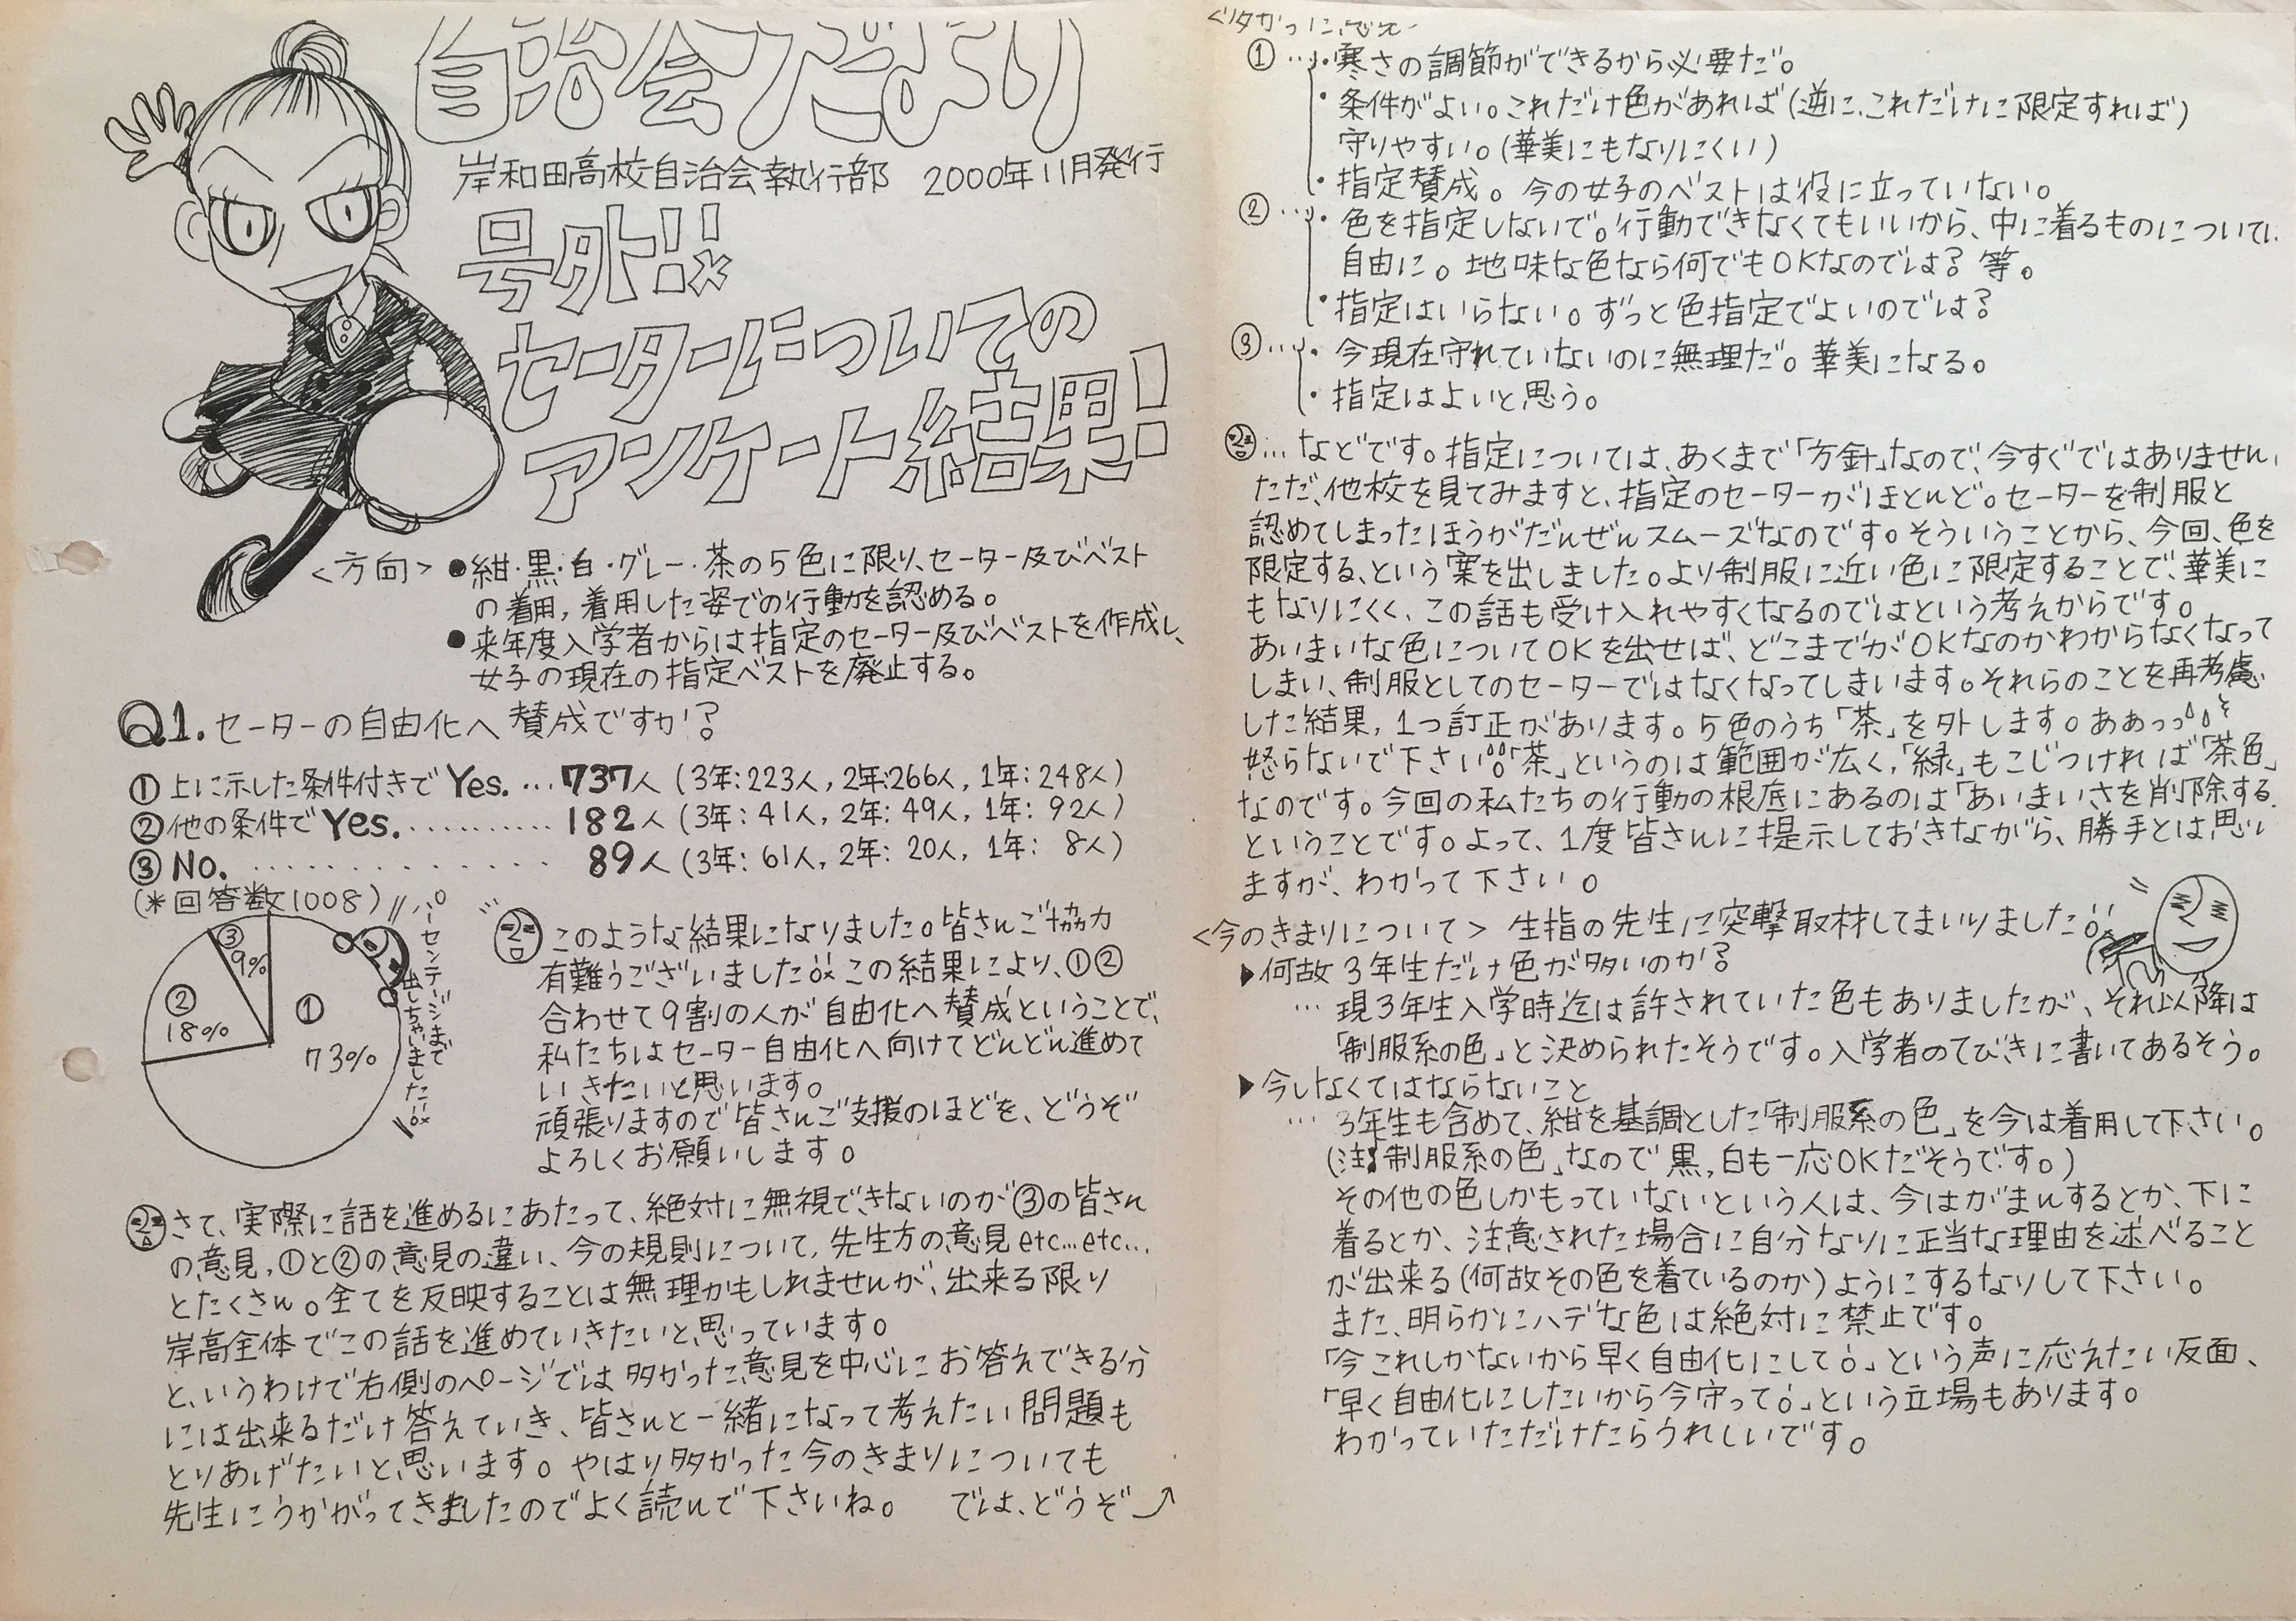 自治会だより
岸和田高校自治会執行部 2000年11月発行
号外!!
セーターについての
アンケート結果!
<方向> ●紺・黒・白・グレー・茶の5色に限り、セーター及びベスト
の着用,着用した姿での行動を認める。
●来年度入学者からは指定のセーター及びベストを作成し、
女子の現在の指定ベストを廃止する。
Q1.セーターの自由化へ賛成ですか?
①上に示した条件付きでYes. …737人(3年:223人,2年:266人,1年:248人)
②他の条件でYes. ……… 182人(3年:41人,2年:49人,1年:92人)
③No. ……… 89人(3年:61人,2年:20人,1年:8人)
(*回答数1008)
③
9%
②
18%
①
73%
パーセンテージまで
出しちゃいました
このような結果になりました。皆さんご協力
有難うございました この結果により、①②
合わせて9割の人が自由化へ賛成ということで、
私たちはセーター自由化へ向けてどんどん進めて
いきたいと思います。
頑張りますので皆さんご支援のほどを、どうぞ
よろしくお願いします。
さて、実際に話を進めるにあたって、絶対に無視できないのが③の皆さん
の意見,①と②の意見の違い、今の規則について,先生方の意見etc…etc…
とたくさん。全てを反映することは無理かもしれませんが、出来る限り
岸高全体でこの話を進めていきたいと思っています。
と、いうわけで右側のページでは多かった意見を中心にお答えできる分
には出来るだけ答えていき、皆さんと一緒になって考えたい問題も
とりあげたいと思います。やはり多かった今のきまりについても
先生にうかがってきましたのでよく読んで下さいね。 では、どうぞ
①…・寒さの調節ができるから必要だ。
・条件がよい。これだけ色があれば(逆に、これだけに限定すれば)
守りやすい。(華美にもなりにくい)
・指定賛成。今の女子のベストは役に立っていない。
②…・色を指定しないで。行動できなくてもいいから、中に着るものについては
自由に。地味な色なら何でもOKなのでは?等。
・指定はいらない。ずっと色指定でよいのでは?
③…・今現在守れていないのに無理だ。華美になる。
・指定はよいと思う。
…などです。指定については、あくまで「方針」なので、今すぐではありません。
ただ、他校を見てみますと、指定のセーターがほとんど。セーターを制服と
認めてしまったほうがだんぜんスムーズなのです。そういうことから、今回、色を
限定する、という案を出しました。より制服に近い色に限定することで、華美に
もなりにくく、この話も受け入れやすくなるのではという考えからです。
あいまいな色についてOKを出せば、どこまでがOKなのかわからなくなって
しまい、制服としてのセーターではなくなってしまいます。それらのことを再考慮
した結果,1つ訂正があります。5色のうち「茶」を外します。ああっっ
怒らないで下さい「茶」というのは範囲が広く,「緑」もこじつければ「茶色」
なのです。今回の私たちの行動の根底にあるのは「あいまいさを削除する」
ということです。よって、1度皆さんに提示しておきながら、勝手とは思い
ますが、わかって下さい。
<今のきまりについて> 生指の先生に突撃取材してまいりました
▶何故3年生だけ色が多いのか?
…現3年生入学時迄は許されていた色もありましたが、それ以降は
「制服系の色」と決められたそうです。入学者のてびきに書いてあるそう。
▶今しなくてはならないこと
…3年生も含めて、紺を基調とした「制服系の色」を今は着用して下さい。
(注「制服系の色」なので黒,白も一応OKだそうです。)
その他の色しかもっていないという人は、今はがまんするとか、下に
着るとか、注意された場合に自分なりに正当な理由を述べること
が出来る(何故その色を着ているのか)ようにするなりして下さい。
また、明らかにハデな色は絶対に禁止です。
「今これしかないから早く自由化にして」という声に応えたい反面、
「早く自由化にしたいから今守って」という立場もあります。
わかっていただけたらうれしいです。